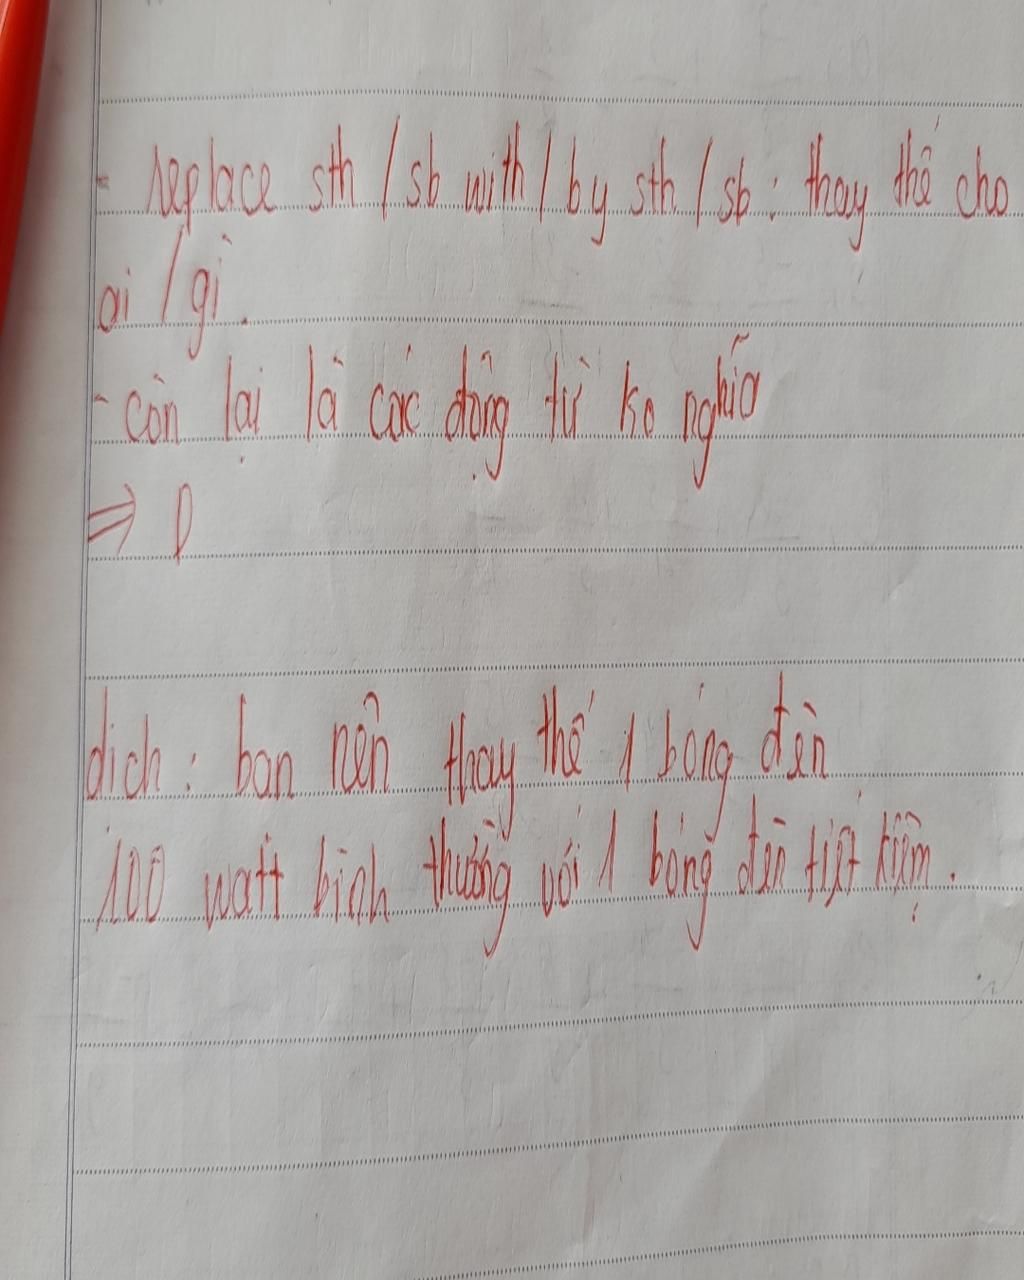 - replace sth / sb with / by sth / sb : thay thế cho
ai / gì.
- còn lại là các động từ ko nghĩa
⇒ D
dich : bạn nên thay thế 1 bóng đèn
100 watt bình thường với 1 bóng đèn tiết kiệm.